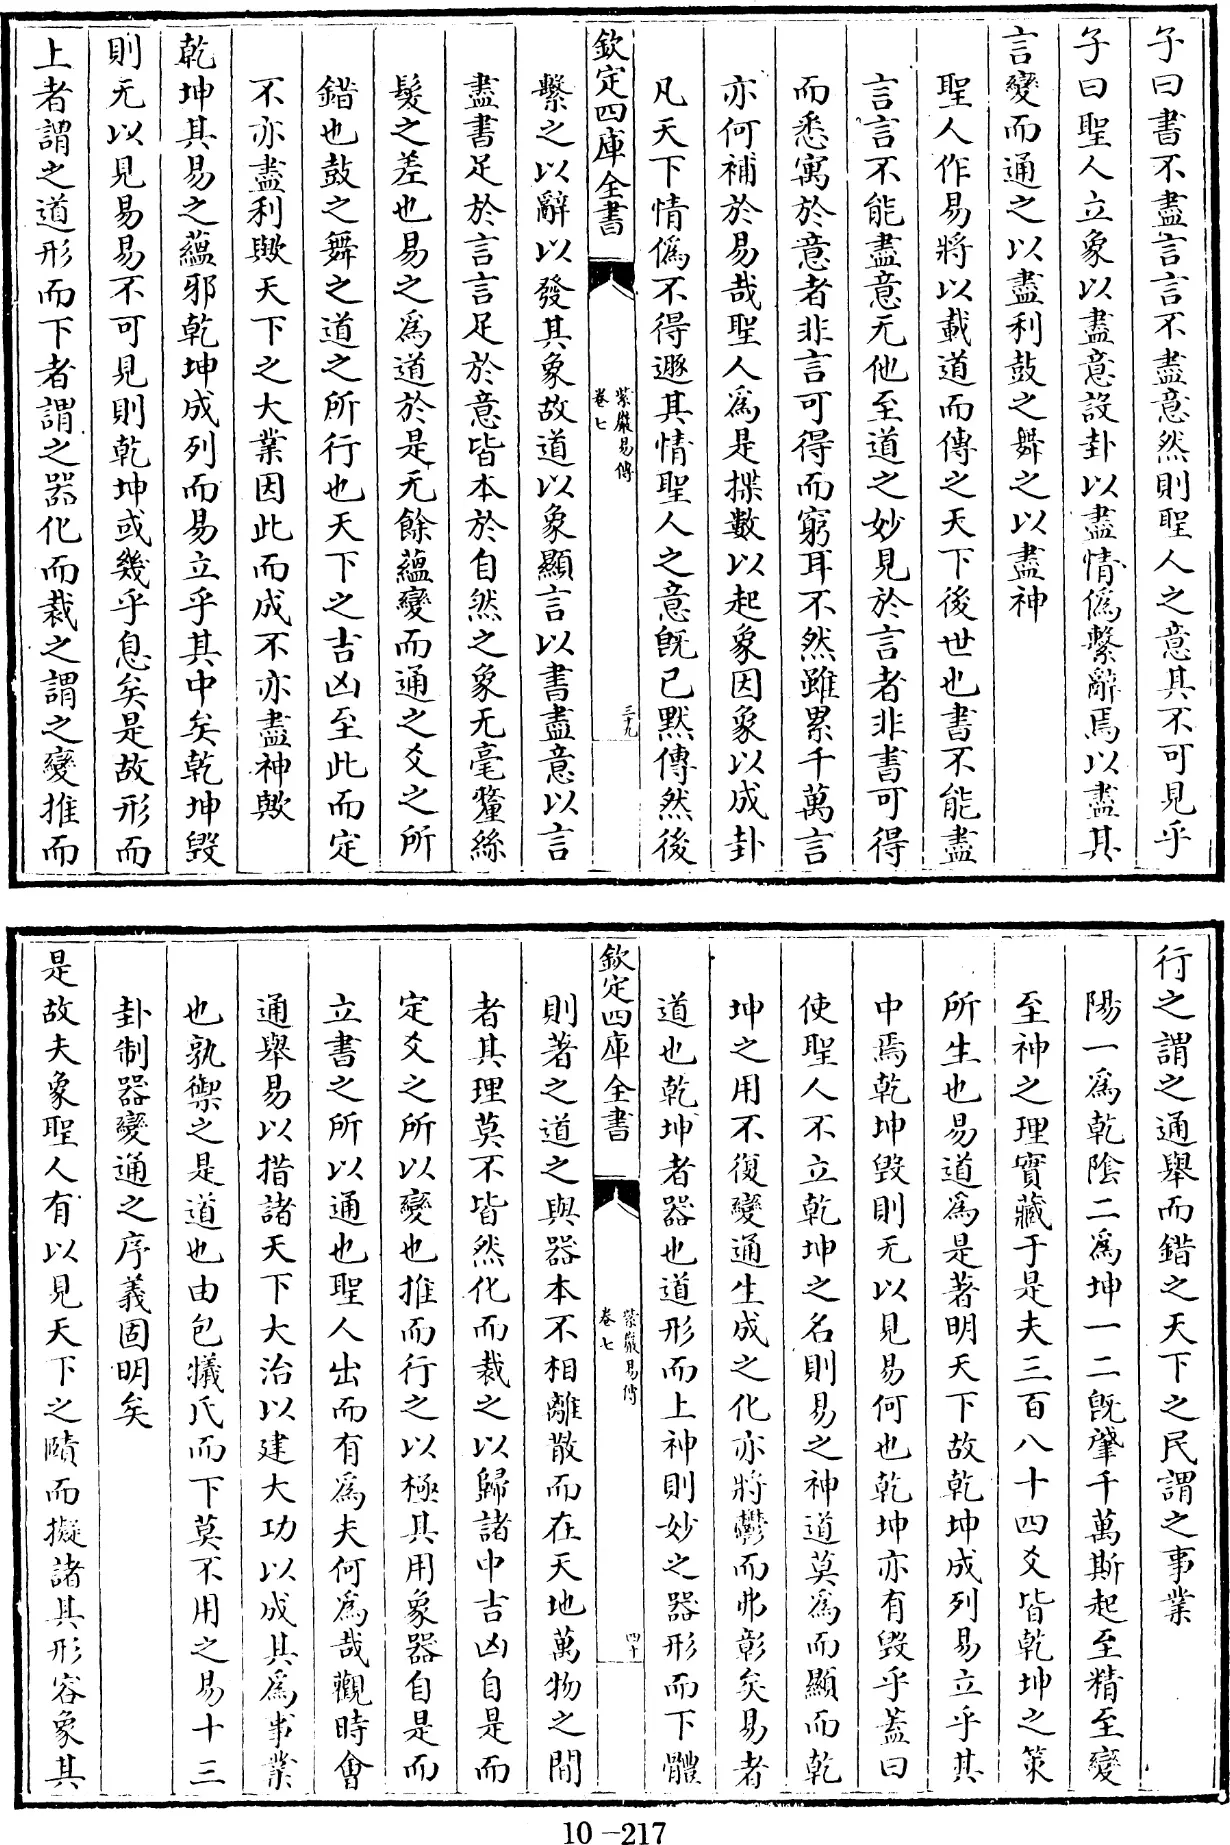 子曰書不盡言言不盡意然則聖人之意其不可見乎
子曰聖人立象以盡意設卦以盡情偽繫辭焉以盡其
言變而通之以盡利鼓之舞之以盡神
聖人作易將以載道而傳之天下後世也書不能盡
言言不能盡意无他至道之妙見於言者非書可得
而悉寓於意者非言可得而窮耳不然雖累千萬言
亦何補於易哉聖人為是揲數以起象因象以成卦
凡天下情偽不得遯其情聖人之意既已默傳然後
欽定四庫全書
紫巖易傳
卷七
三十九
繫之以辭以發其象故道以象顯言以書盡意以言
盡書足於言言足於意皆本於自然之象无毫釐絲
髮之差也易之為道於是无餘蘊變而通之爻之所
錯也鼓之舞之道之所行也天下之吉凶至此而定
不亦盡利歟天下之大業因此而成不亦盡神歟
乾坤其易之蘊邪乾坤成列而易立乎其中矣乾坤毀
則无以見易易不可見則乾坤或幾乎息矣是故形而
上者謂之道形而下者謂之器化而裁之謂之變推而
行之謂之通舉而錯之天下之民謂之事業
陽一為乾陰二為坤一二既肇千萬斯起至精至變
至神之理實藏于是夫三百八十四爻皆乾坤之策
所生也易道為是著明天下故乾坤成列易立乎其
中焉乾坤毀則无以見易何也乾坤亦有毀乎蓋曰
使聖人不立乾坤之名則易之神道莫為而顯而乾
坤之用不復變通生成之化亦將鬱而弗彰矣易者
道也乾坤者器也道形而上神則妙之器形而下體
欽定四庫全書
紫巖易傳
卷七
四十
則著之道之與器本不相離散而在天地萬物之間
者其理莫不皆然化而裁之以歸諸中吉凶自是而
定爻之所以變也推而行之以極其用象器自是而
立書之所以通也聖人出而有為夫何為哉觀時會
通舉易以措諸天下大治以建大功以成其為事業
也孰禦之是道也由包犧氏而下莫不用之易十三
卦制器變通之序義固明矣
是故夫象聖人有以見天下之賾而擬諸其形容象其
10-217